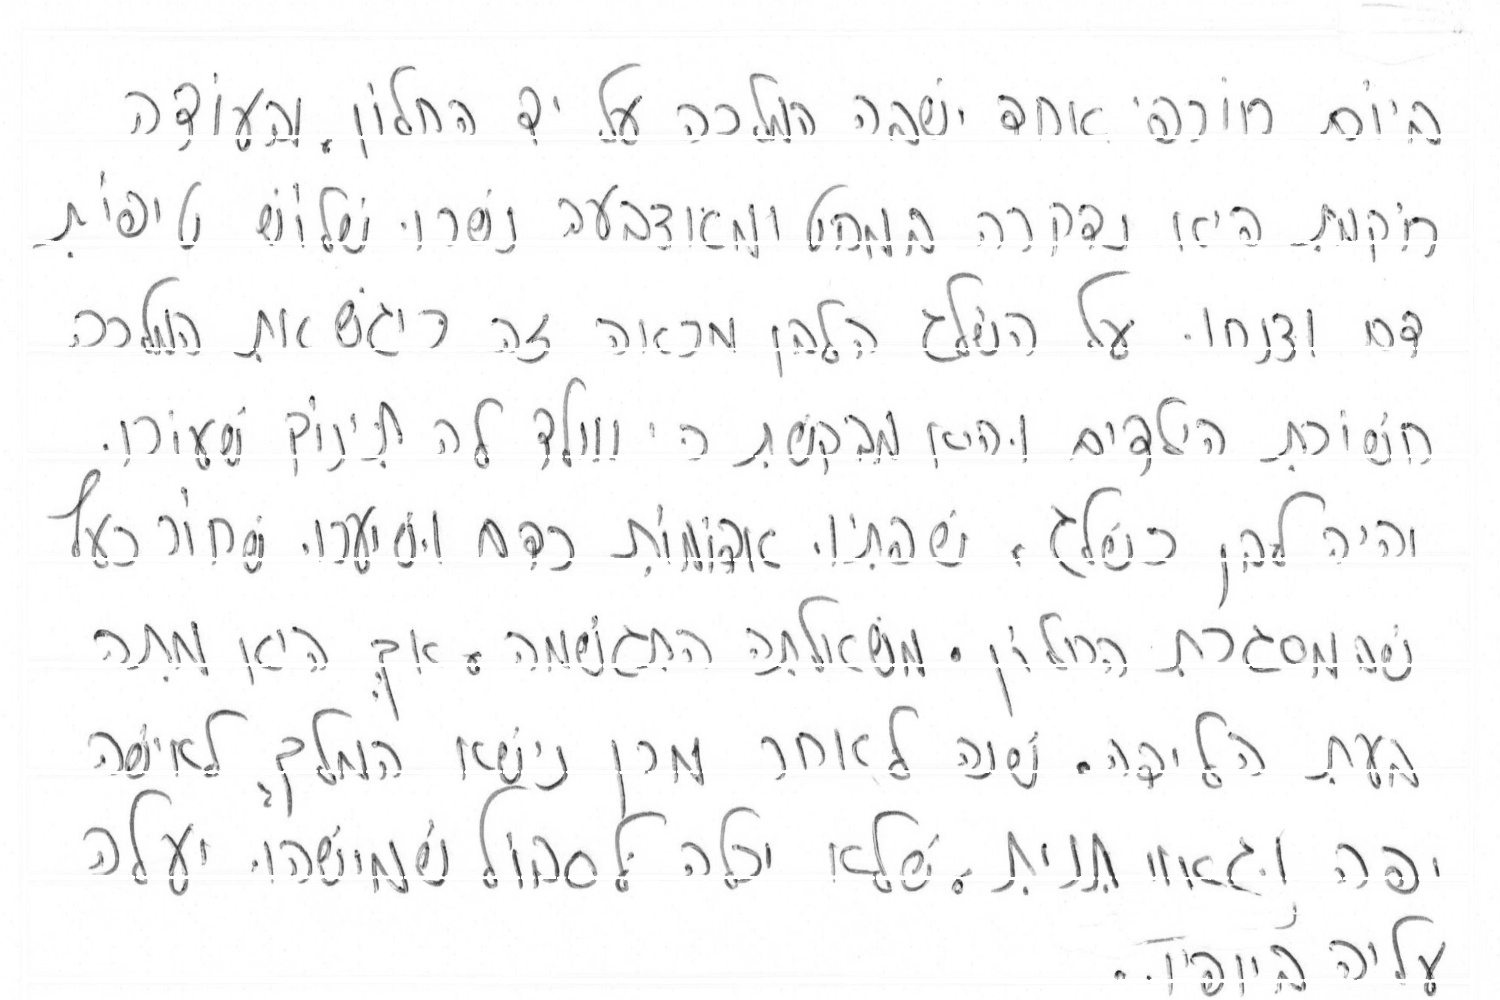 ביום חורפי אחד ישבה המלכה על יד החלון, ובעודה
רוקמת היא נדקרה במחט ומאצבעה נשרו שלוש טיפות
דם וצנחו על השלג הלבן מראה זה ריגש את המלכה
חשוכת הילדים והיא מבקשת כי יוולד לה תינוק שעורו
יהיה לבן כשלג, שפתיו אדומות כדם ושיערו שחור כעץ
שבמסגרת החלון. משאלתה התגשמה, אך היא מתה
בעת הלידה. שנה לאחר מכן נישא המלך, לאישה
יפה וגאוותנית, שלא יכלה לסבול שמישהו יעלה
עליה ביופיו.